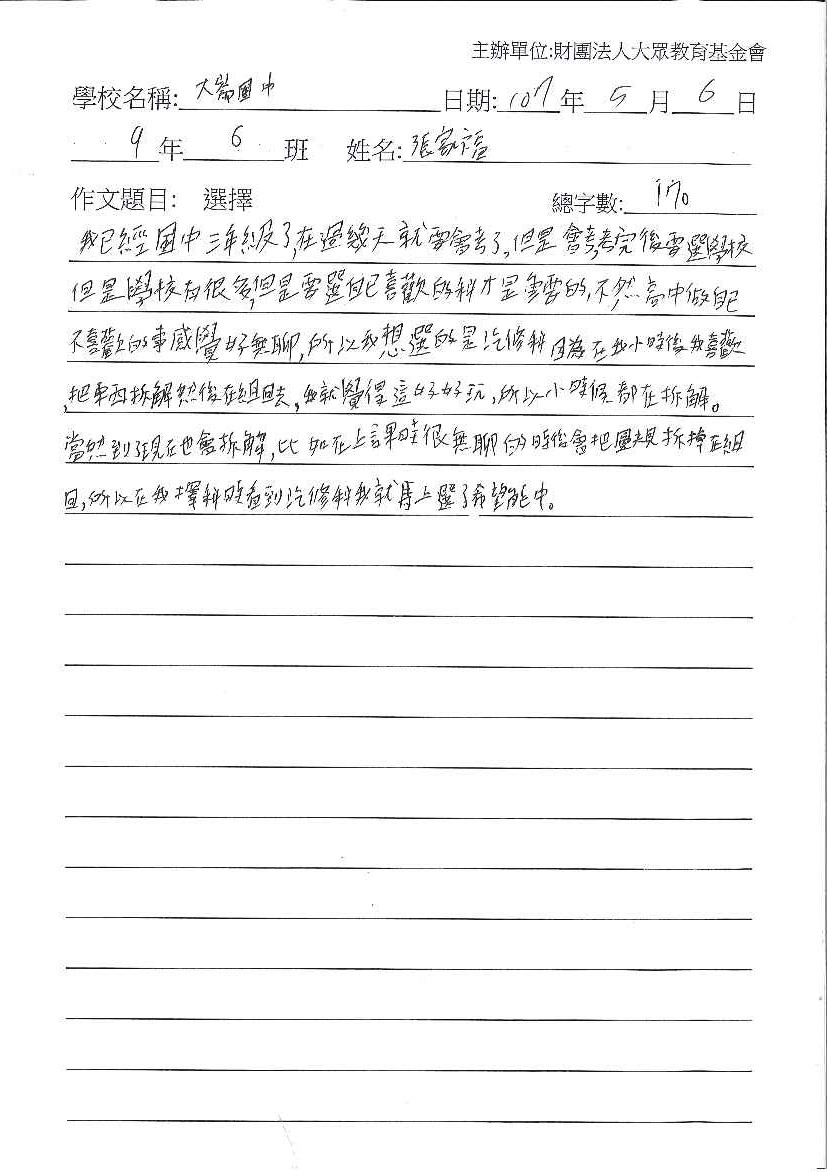 主辦單位:財團法人大眾教育基金會
學校名稱: 大崙國中 日期: 107 年 5 月 6 日
9 年 6 班 姓名: 張家福
作文題目: 選擇 總字數: 170
我已經國中三年級了,在過幾天就要會考了,但是會考,考完後要選學校
但是學校有很多,但是要選自己喜歡的科才是重要的,不然高中做自己
不喜歡的事感覺好無聊,所以我想選的是汽修科因為在我小時後我喜歡
把東西拆解然後在組回去,我就覺得這好好玩,所以小時候都在拆解。
當然到了現在也會拆解,比如在上課時很無聊的時後會把圓規拆掉在組
回,所以在我擇科時看到汽修科我就馬上選了希望能中。